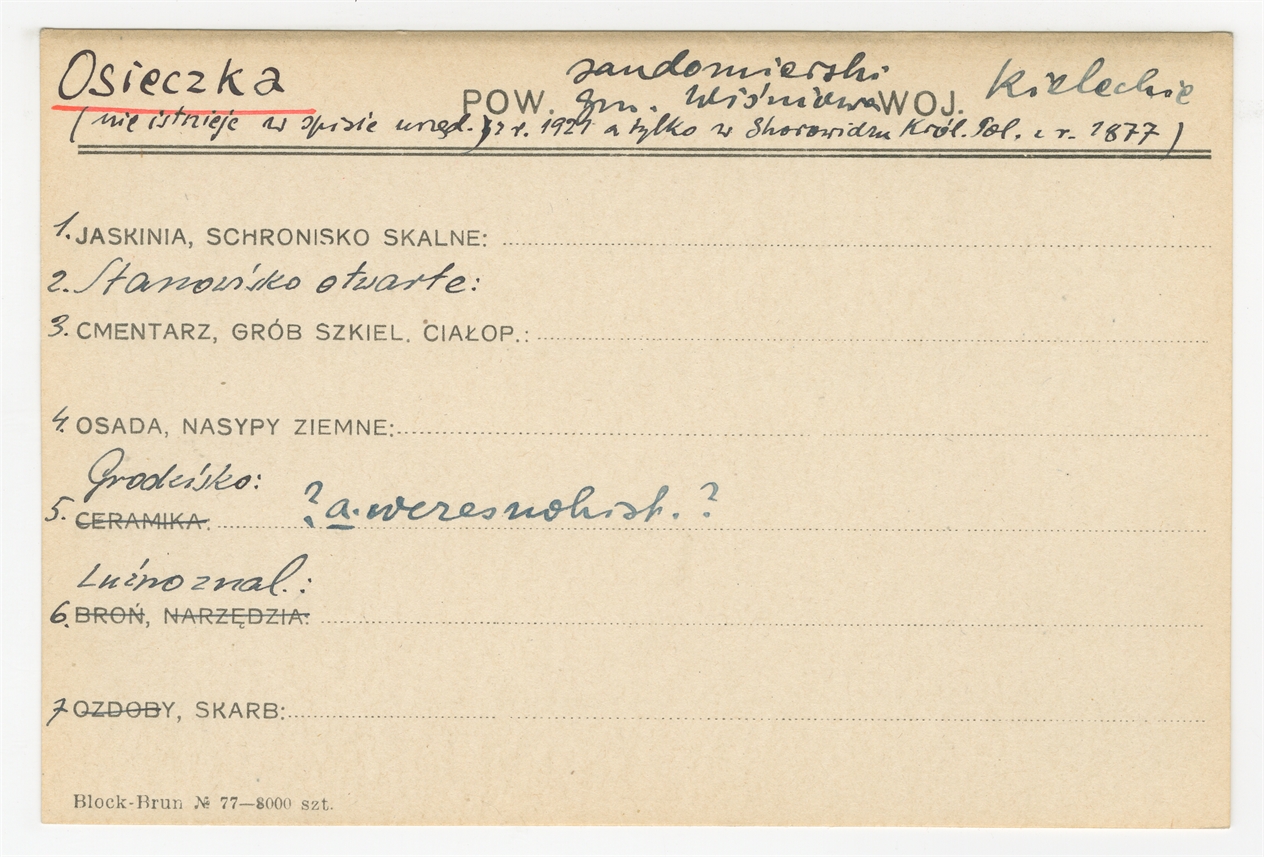 Osieczka POW. sandomierski gm. Wiśniowa WOJ. Kieleckie
(nie istnieje w spisie urzęd. z r. 1921 a tylko w Skorowidzu Król. Pol. z r. 1877)
1. JASKINIA, SCHRONISKO SKALNE:
2. Stanowisko otwarte:
3. CMENTARZ, GRÓB SZKIEL. CIAŁOP.:
4. OSADA, NASYPY ZIEMNE:
Grodzisko:
5. CERAMIKA: ? a. wczesnohist. ?
Luźno znal.:
6. BROŃ, NARZĘDZIA:
7 OZDOBY, SKARB:
Block-Brun № 77—8000 szt.